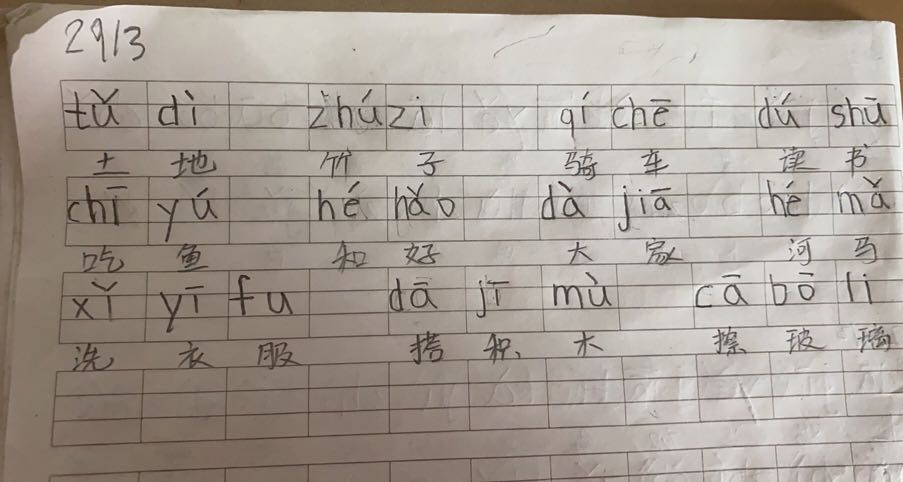 29/3
tǔ dì zhúzi qí chē dú shū
土 地 竹 子 骑 车 读 书
chī yú hé hǎo dà jiā hé mǎ
吃 鱼 和 好 大 家 河 马
xǐ yī fu dā jī mù cā bō li
洗 衣 服 搭 积 木 擦 玻 璃